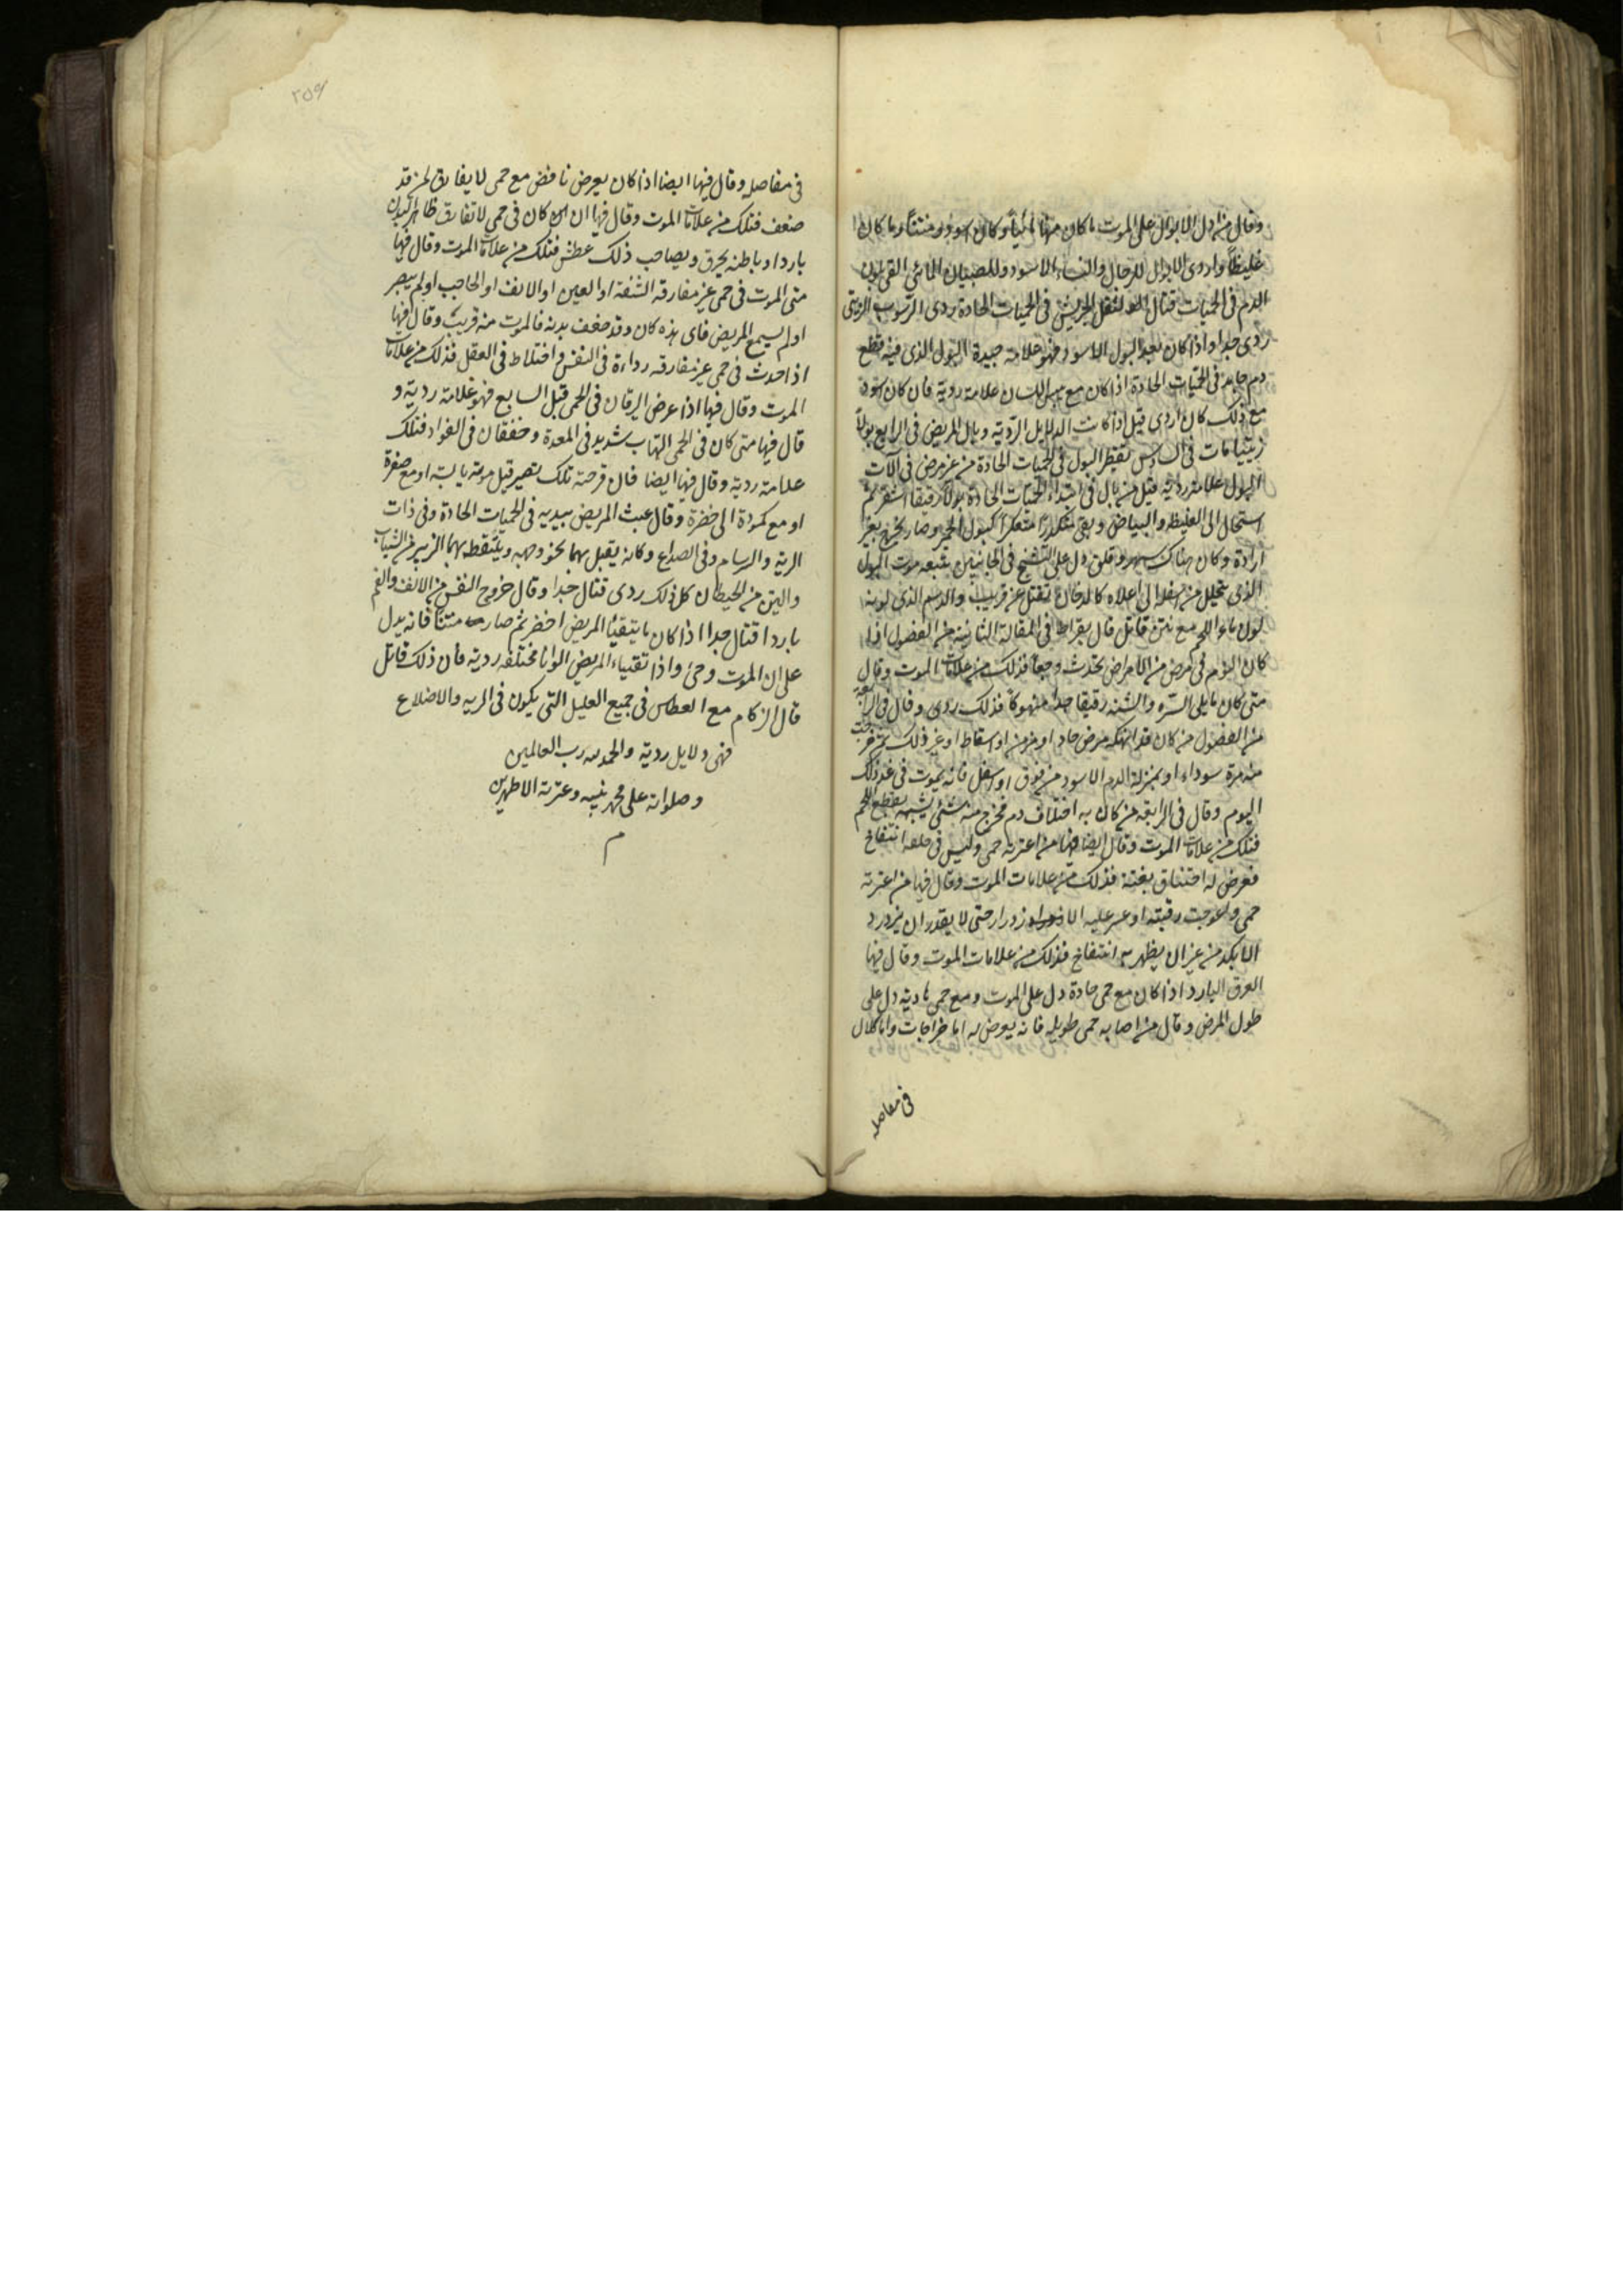 وقال من ادل الابوال على الموت ما كان منها مائياً وكان اسود ومنتناً وما كان
غليظاً واردى الابوال للرجال والنساء الاسود وللصبيان المائى القى لون
الدم فى الحميات قتال الثفل الجريش فى الحميات الحادة ردى الرسوب الزيتى
ردى جدا واذا كان بعد البول الاسود فهو علامة جيدة البول الذى فيه قطع
دم جامد فى الحميات الحادة اذا كان مع يبس اللسان علامة ردية فان كان اسود
مع ذلك كان اردى قيل اذا كانت الدلايل الردية وبال المريض فى الرابع بولاً
زيتيا مات فى السادس تقطير البول فى الحميات الحادة من غير مرض فى آلات
البول علامة ردية قيل من بال فى ابتداء الحميات الحادة بولا رقيقا اشقر ثم
استحال الى الغليظ والبياض وبقى متكدرا متعكرا كبول الحمير وصار يخرج بغير
ارادة وكان هناك سهر وقلق دل على التشنج فى الجانبين يتبعه موت البول
الذى يتحلل من اسفل الى اعلاه كالدخان يقتل عن قريب والدسم الذى لونه
لون ماء اللحم مع نتن قاتل قال بقراط فى المقالة الثانية من الفصول اذا
كان النوم فى مرض من الامراض يحدث وجعا فذلك من علامات الموت وقال
متى كان مايلى السره والثنه رقيقا جدا منهوكا فذلك ردى وقال فى الرابعة
من الفصول من كان قد انهكه مرض حاد او مزمن او اسقاط او غير ذلك ثم خرجت
منه مرة سوداء او بمنزلة الدم الاسود من فوق او اسفل فانه يموت فى غد ذلك
اليوم وقال فى الرابعه من كان به اختلاف دم فخرج منه شئ يشبه بقطع اللحم
فتلك من علامات الموت وقال ايضا فيها من اعترته حمى وليس فى حلقه انتفاخ
فعرض له اختناق بغتة فذلك من علامات الموت وقال فيها من اعترته
حمى واعوجت رقبته او عسر عليه الازدرار حتى لا يقدر ان يزدرد
الا بكد من غير ان يظهر به انتفاخ فذلك من علامات الموت وقال فيها
العرق البارد اذا كان مع حمى حادة دل على الموت ومع حمى هادية دل على
طول المرض وقال من اصابه حمى طويله فانه يعرض له اما خراجات واما كلال
فى مفاصله
٢٥٩
فى مفاصله وقال فيها ايضا اذا كان يعرض نافض مع حمى لا يفارق لمن قد
ضعف فتلك من علامات الموت وقال فيها ان كان فى حمى لا تفارق ظاهر البدن
باردا وباطنه يحرق وبصاحب ذلك عطش فتلك من علامات الموت وقال فيها
متى الموت فى حمى غير مفارقه الشفة او العين او الانف او الحاجب او لم يبصر
او لم يسمع المريض فاى هذه كان وقد ضعف بدنه فالموت منه قريب وقال فيها
اذا حدث فى حمى غير مفارقه رداءة فى النفس واختلاط فى العقل فذلك من علامات
الموت وقال فيها اذا عرض اليرقان فى الحمى قبل السابع فهو علامة ردية و
قال فيها متى كان فى الحمى التهاب شديد فى المعدة وخفقان فى الفواد فتلك
علامة ردية وقال فيها ايضا فان قرحته تلك تصير قبل موته يابسة او مع صفرة
او مع كمودة الى خضرة وقال عبث المريض بيديه فى الحميات الحادة وفى ذات
الرية والسرسام وفى الصداع وكانه يقبل بهما نحو وجهه ويلتقط بهما الزيبر من الثياب
والتبن من الحيطان كل ذلك ردى قتال جدا وقال خروج النفس من الانف والفم
باردا قتال جدا اذا كان ما يتقيا المريض اخضر ثم صار منتنا فانه يدل
على ان الموت وحى واذا تقياء المريض الوانا مختلفه ردية فان ذلك قاتل
قال الزكام مع العطاس فى جميع العليل التى يكون فى الريه والاضلاع
فهى دلايل ردية والحمد لله رب العالمين
وصلواته على محمد نبيه وعترته الاطهرين
م